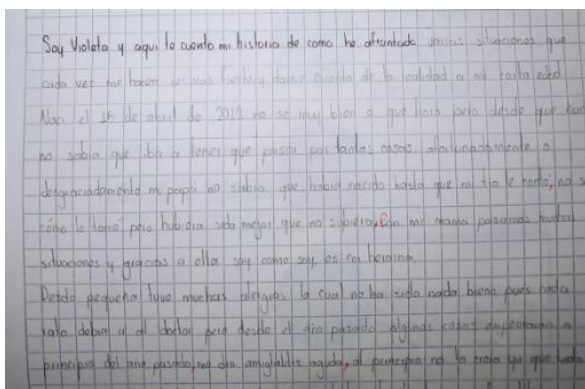 Soy Violeta y aqui le cuento mi historia de como he afrontado varias situaciones que
cada vez me hacen ser mas fuerte y darme cuenta de la realidad a mi corta edad
Naci el 15 de abril de no se muy bien a que hora pero desde que
no sabia que iba a tener que pasar por tantas cosas, afortunadamente o
desgraciadamente mi papa no sabia que habia nacido hasta que mi tia le conto, no s
cómo lo tomó pero hubiera sido mejor que no supiera, Con mi mama pasamos muchas
situaciones y gracias a ella soy como soy es mi heroina
Desde pequeña tuve muchas alergias la cual no ha sido nada bueno, pues cada
rato debia ir al doctor pero desde el año pasado algunas cosas empeoraron a
principio del año pasado, me dio amigdalitis aguda, al principio no lo creia ya que